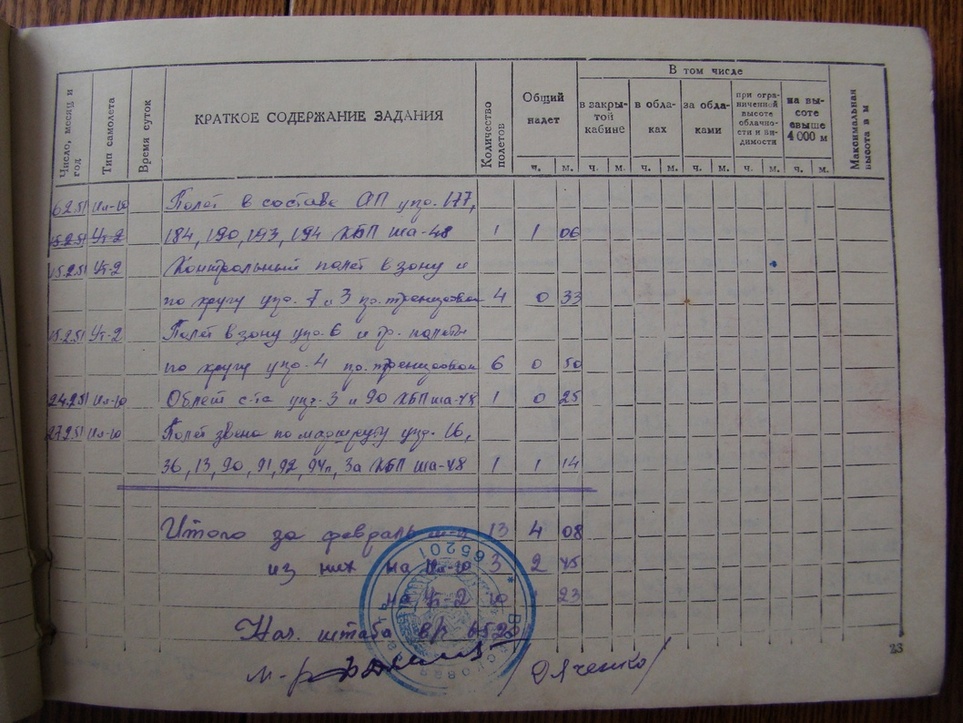 Число, месяц и год
Тип самолета
Время суток
КРАТКОЕ СОДЕРЖАНИЕ ЗАДАНИЯ
Количество полетов
Общий налет
В том числе
в закрытой кабине
в облаках
за облаками
при ограниченной высоте облачности и видимости
на высоте свыше 4 000 м
Максимальная высота в м
ч. м. ч. м. ч. м. ч. м. ч. м. ч. м.
6.2.51 Ил-10 Полет в составе АП упр. 177,
15.2.51 Ут-2 184, 190, 193, 194 КБП ша-48 1 1 06
15.2.51 Ут-2 Контрольный полет в зону и
по кругу упр. 7 и 3 пр. 4 0 33
15.2.51 Ут-2 Полет в зону упр. 6 и тр. полеты
по кругу упр. 4 пр. 6 0 50
24.2.51 Ил-10 Облет с-та упр. 3 и 90 КБП ша-48 1 0 25
27.2.51 Ил-10 Полет звена по маршруту упр. 16,
36, 13, 90, 91, 92, 94п, 3а КБП ша-48 1 1 14
Итого за февраль 13 4 08
из них на Ил-10 3 2 45
на Ут-2 10 23
Нач. штаба в/ч 652
65201
м-р /Дяченко/
23